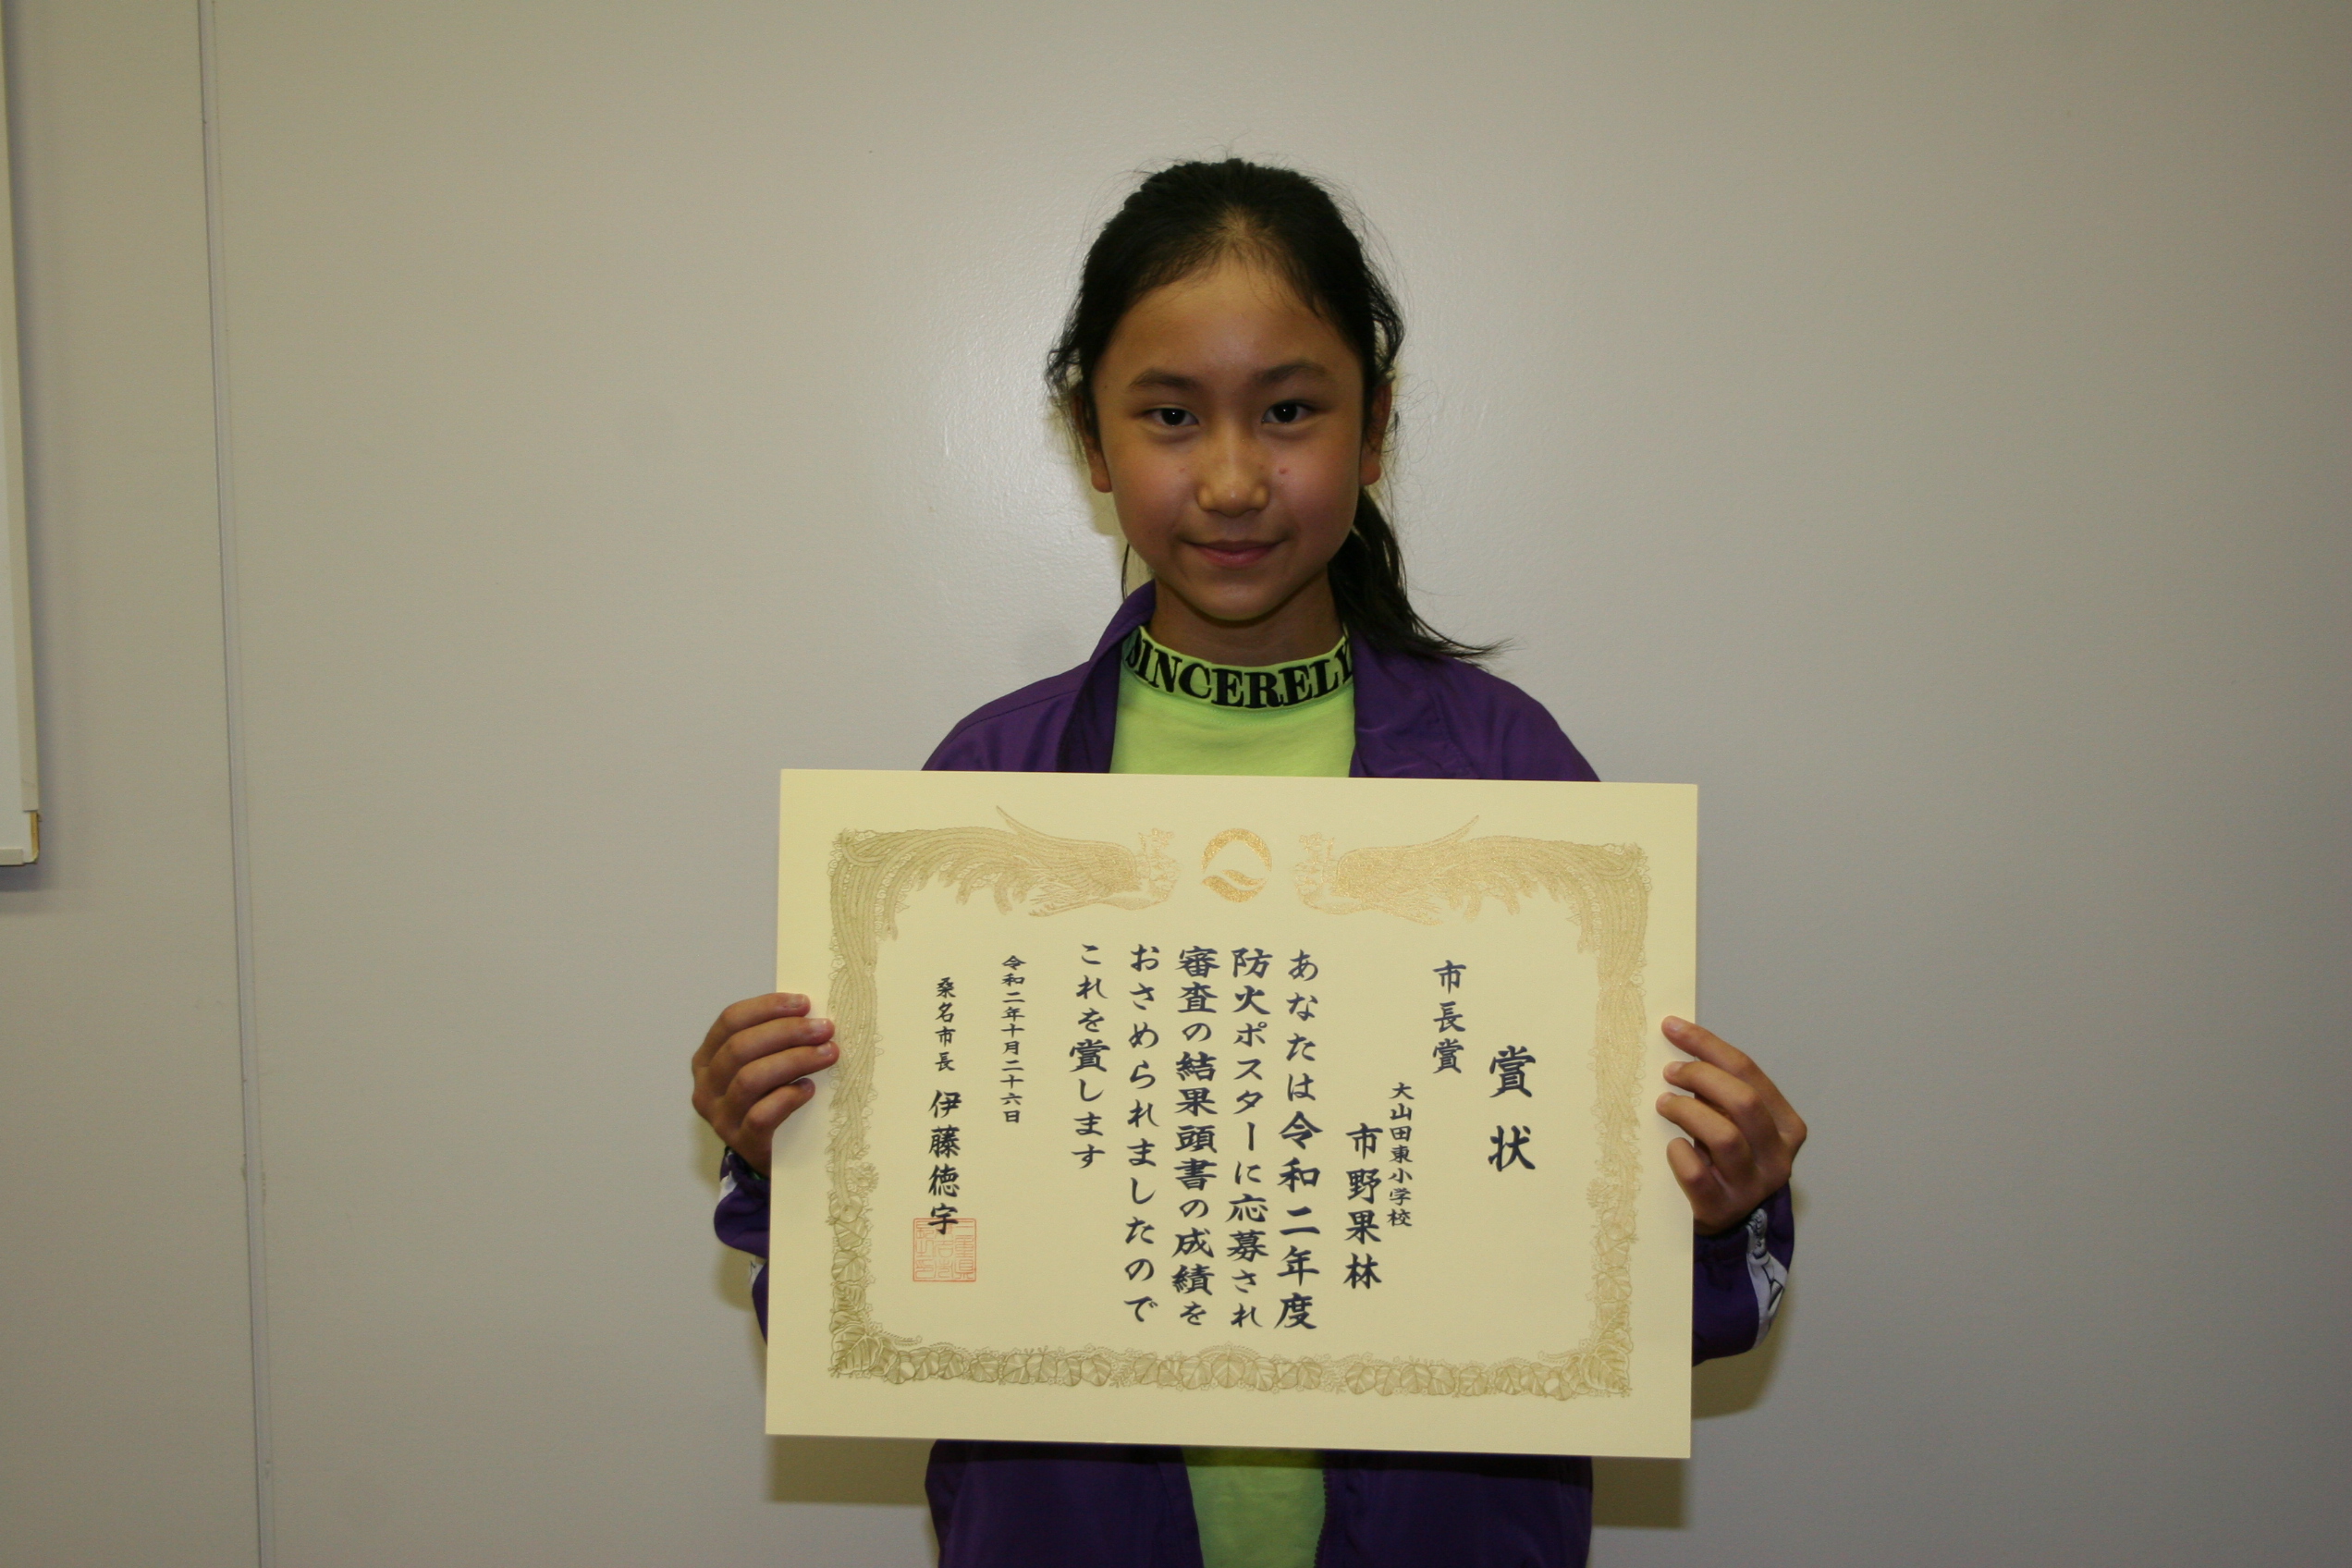 SINCERELY
賞状
市長賞
大山田東小学校
市野果林
あなたは令和二年度
防火ポスターに応募され
審査の結果頭書の成績を
おさめられましたので
これを賞します
令和二年十月二十六日
桑名市長 伊藤徳宇